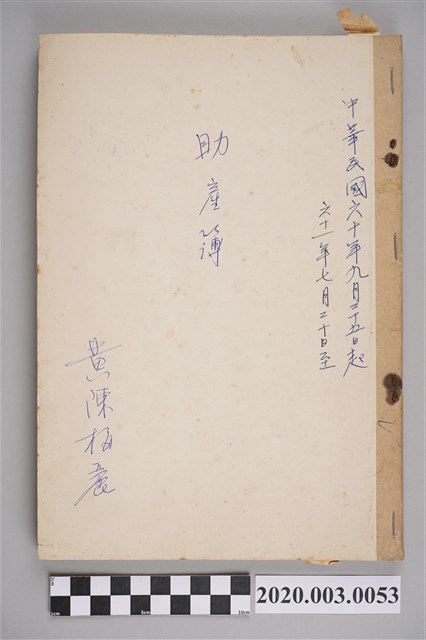 中華民國六十年九月二十五日起
六十一年七月二十日至
助產簿
黃陳梅麗
1cm 5cm 10cm
2020.003.0053